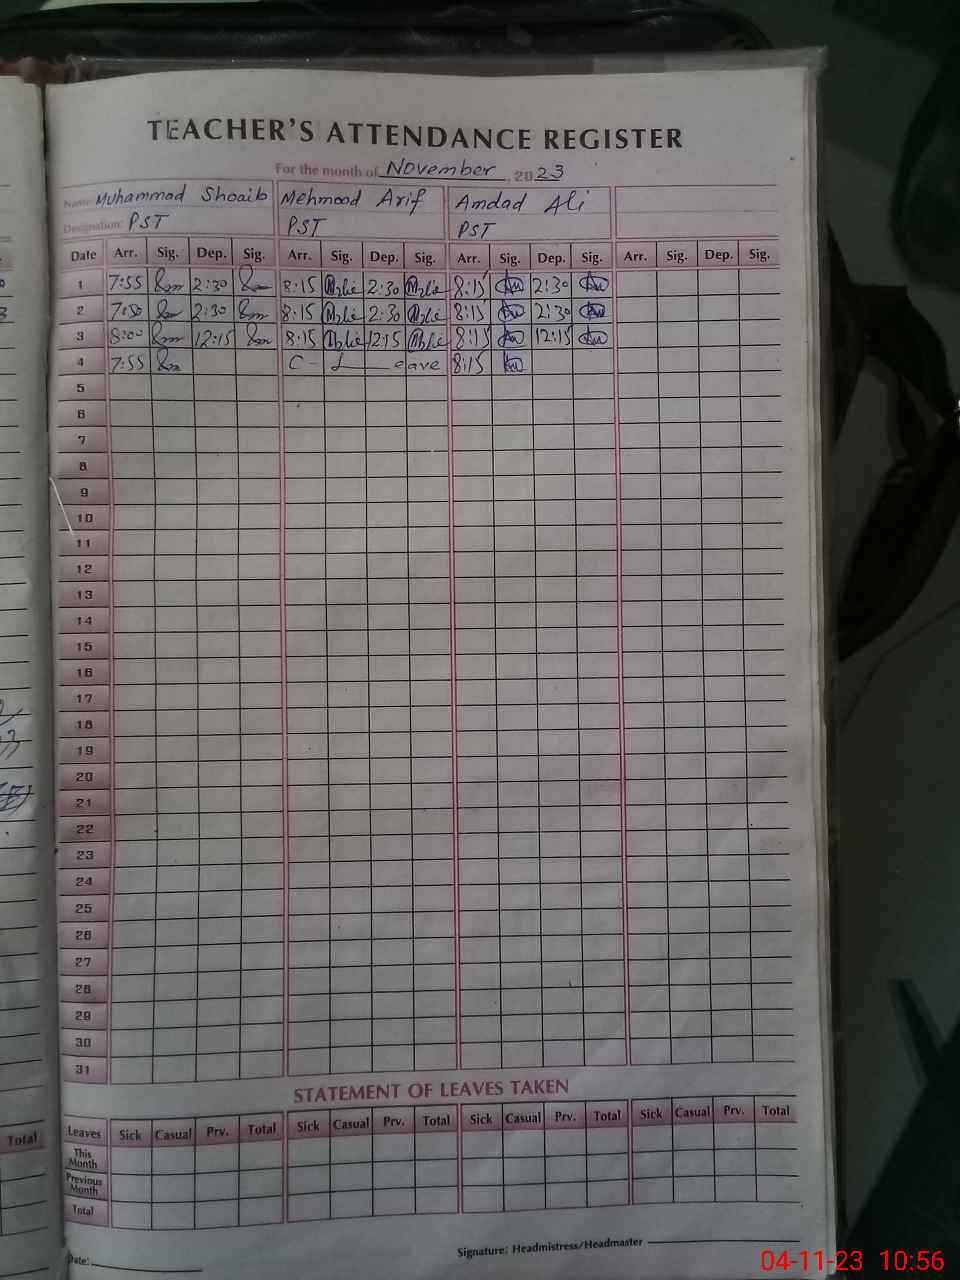 TEACHER'S ATTENDANCE REGISTER
For the month of November, 2023
Name: Muhammad Shoaib Mehmood Arif Amdad Ali
Designation: PST PST PST
Date Arr. Sig. Dep. Sig. Arr. Sig. Dep. Sig. Arr. Sig. Dep. Sig. Arr. Sig. Dep. Sig.
1 7:55 2:30 8:15 2:30 8:15 2:30
2 7:50 2:30 8:15 2:30 8:15 2:30
3 8:00 12:15 8:15 12:15 8:15 12:15
4 7:55 C - Leave 8:15
5
6
7
8
9
10
11
12
13
14
15
16
17
18
19
20
21
22
23
24
25
26
27
28
29
30
31
STATEMENT OF LEAVES TAKEN
Total Leaves Sick Casual Prv. Total Sick Casual Prv. Total Sick Casual Prv. Total Sick Casual Prv. Total
This Month
Previous Month
Total
Date:
Signature: Headmistress/Headmaster
04-11-23 10:56